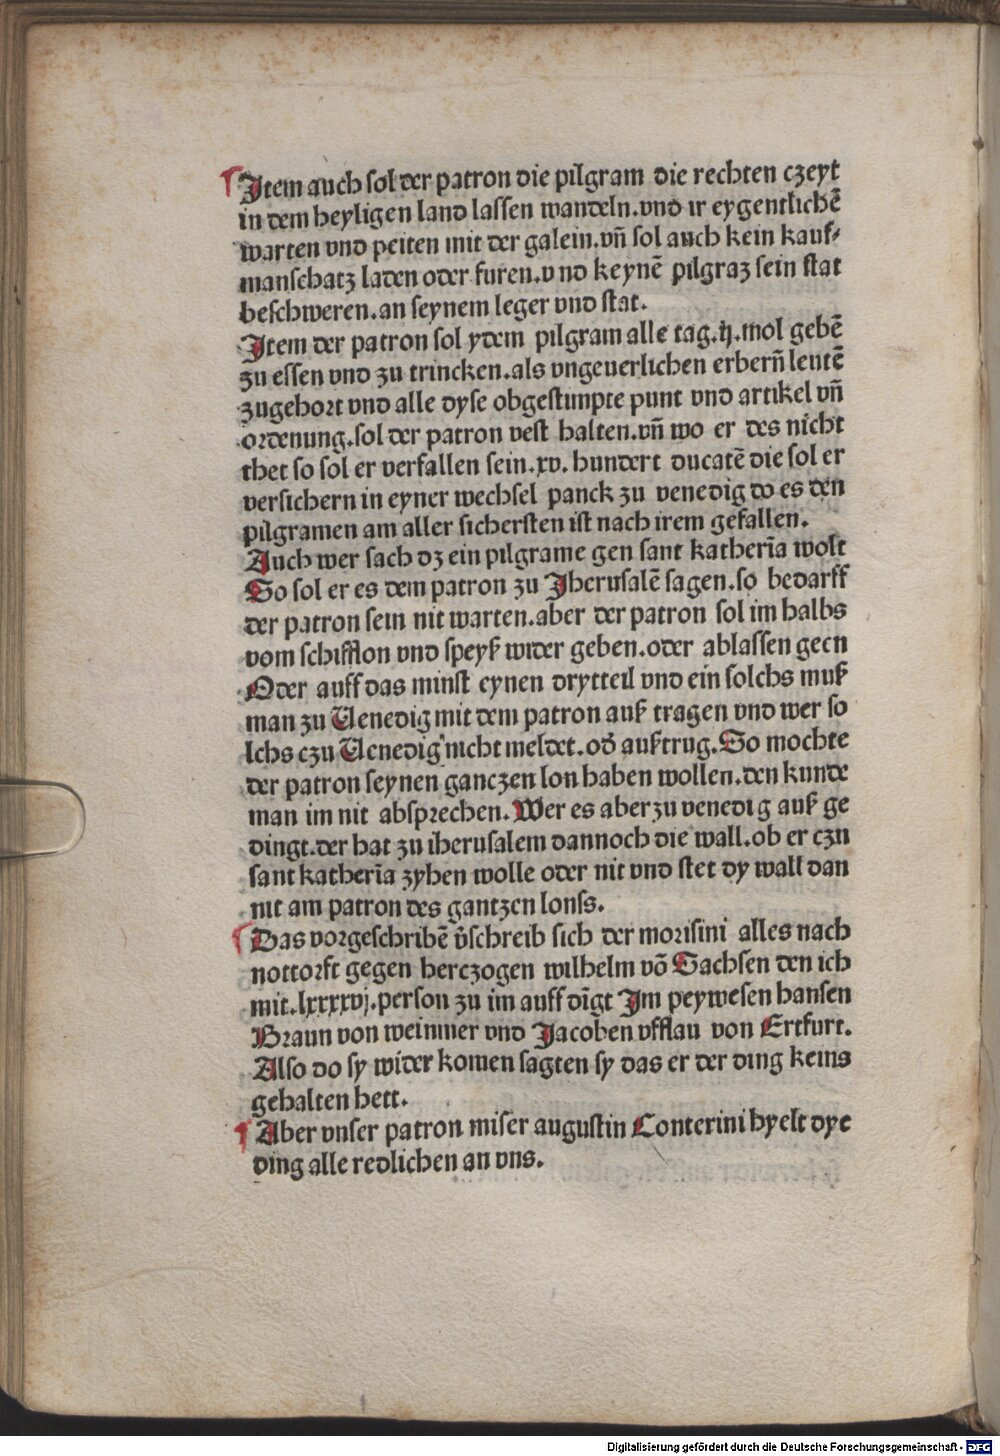 Item auch sol der patron die pilgram die rechten czeyt
in dem heyligen land lassen wandeln.vnd ir eygentlichē
warten vnd peiten mit der galein.vn̄ sol auch kein kauf⸗
manschatz laden oder furen.vnd keynē pilgraz sein stat
beschweren.an seynem leger vnd stat.
Item der patron sol ydem pilgram alle tag.ij.mol gebē
zu essen vnd zu trincken.als vngeuerlichen erbern̄ leutē
zugehort vnd alle dyse obgestimpte punt vnd artikel vn̄
ordenung.sol der patron vest halten.vn̄ wo er des nicht
thet so sol er verfallen sein.xv.hundert ducatē die sol er
versichern in eyner wechsel panck zu venedig do es den
pilgramen am aller sichersten ist nach irem gefallen.
Auch wer sach dz ein pilgrame gen sant katherīa wolt
So sol er es dem patron zu Jherusalē sagen.so bedarff
der patron sein nit warten.aber der patron sol im halbs
vom schifflon vnd speyß wider geben.oder ablassen geen
Oder auff das minst eynen drytteil vnd ein solchs muß
man zu Venedig mit dem patron auß tragen vnd wer so
lchs czu Venedig nicht meldet.od̄ außtrug.So mochte
der patron seynen ganczen lon haben wollen.den kunde
man im nit absprechen.Wer es aber zu venedig auß ge
dingt.der hat zu iherusalem dannoch die wall.ob er czu
sant katherīa zyhen wolle oder nit vnd stet dy wall dan
nit am patron des gantzen lonss.
Das vorgeschribē v̄schreib sich der morisini alles nach
nottorft gegen herczogen wilhelm vō Sachsen den ich
mit.lxxxxvj.person zu im auff dīgt Im peywesen hansen
Braun von weinmer vnd Jacoben vfflau von Ertfurt.
Also do sy wider komen sagten sy das er der ding keins
gehalten hett.
Aber vnser patron miser augustin Conterini hyelt dye
ding alle redlichen an vns.
Digitalisierung gefördert durch die Deutsche Forschungsgemeinschaft - DFG